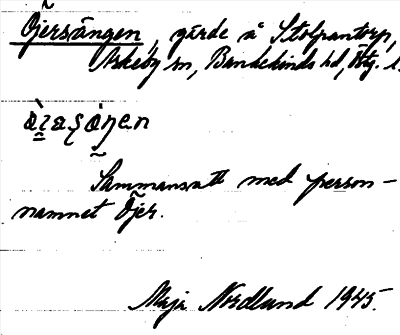 Öjersängen, gärde å Stolpantorp,
Askeby sn, Bankekinds hd, Ötg. l.
Sammansatt med person-
namnet Öjer.
Maja Nordlund 1945.